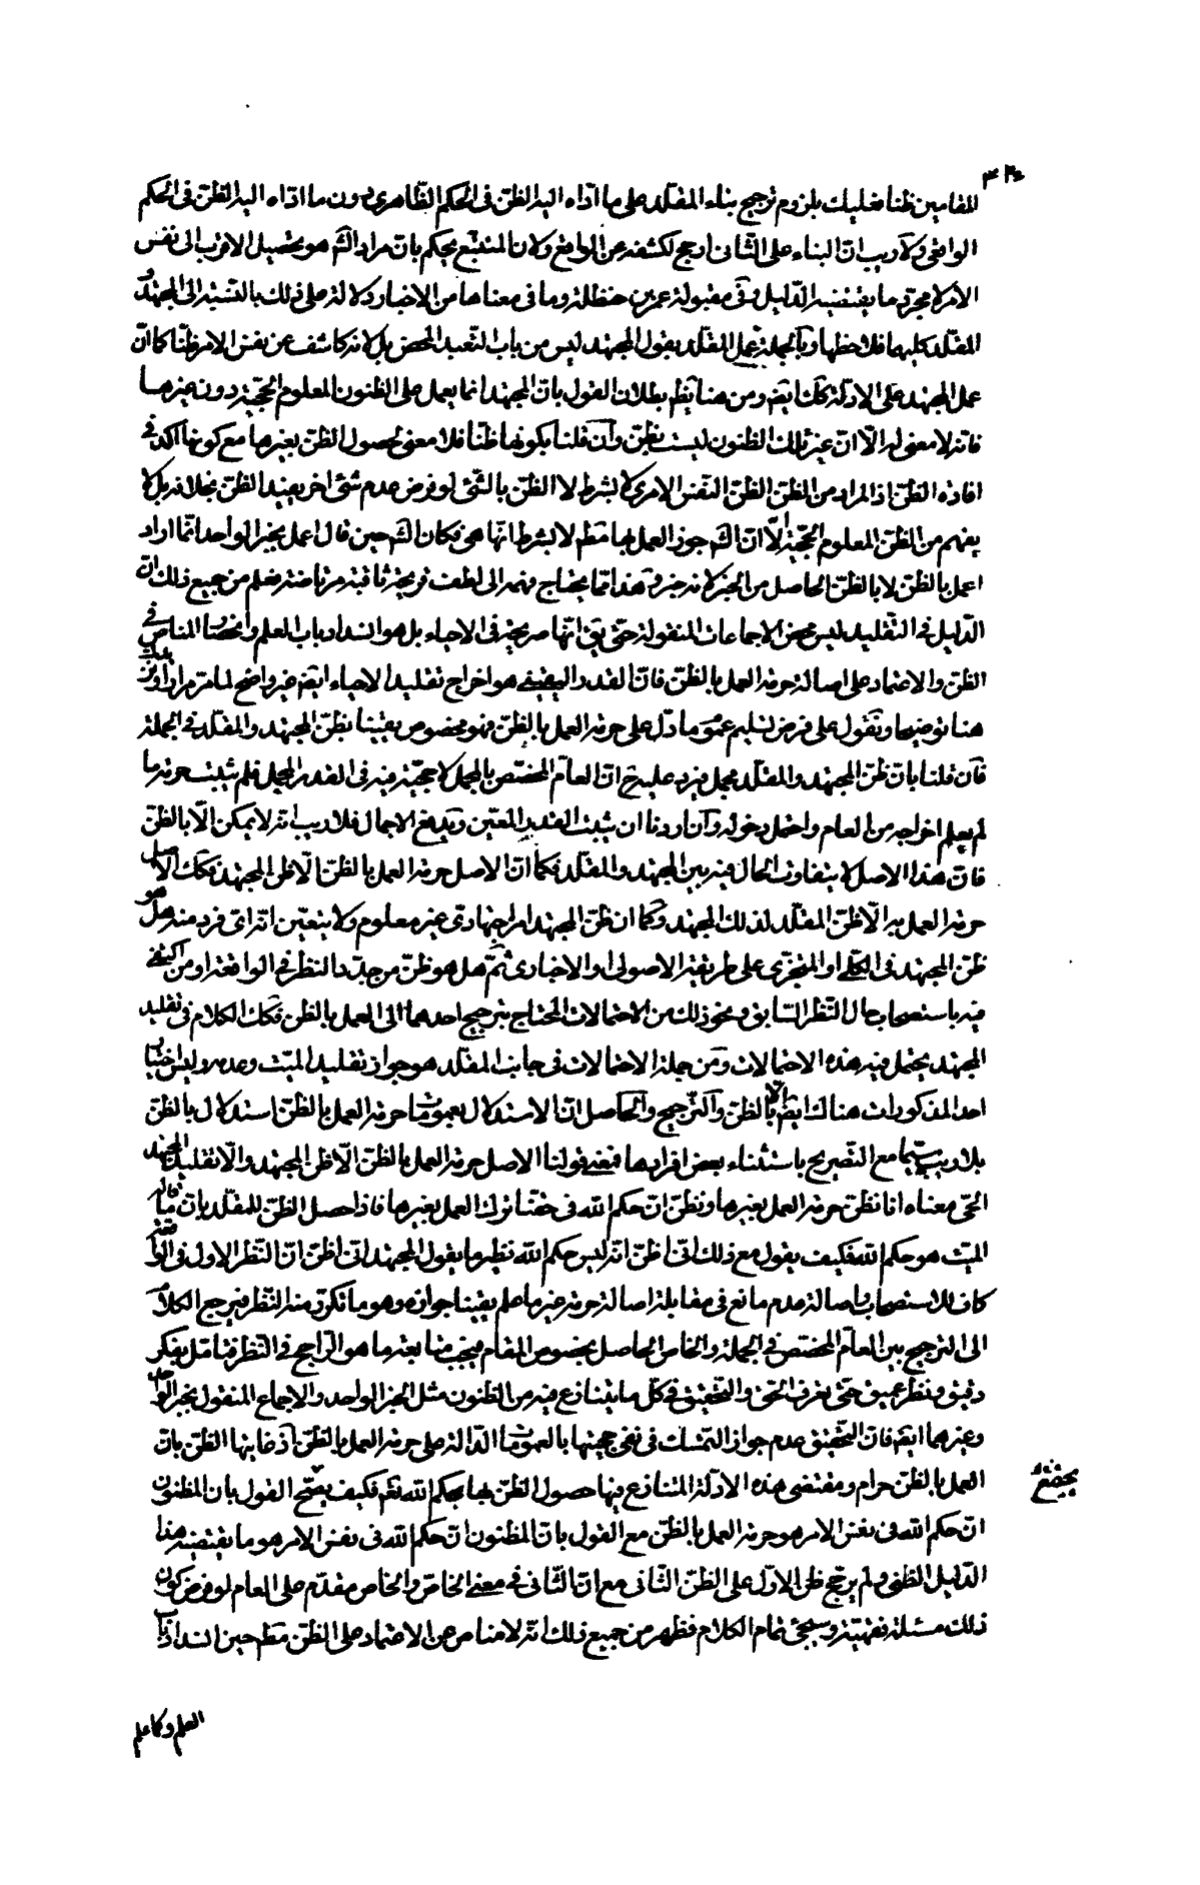 المقامين ظنا فعليك بلزوم ترجيح بناء المقلد على ما ادّاه اليه الظنّ فى الحكم الظّاهرى دون ما ادّاه اليه الظنّ فى الحكم
الواقعى ولا ريب انّ البناء على الثّانى ارجح لكشفه عن الواقع ولانّ المتتبّع يحكم بانّ مراد الشّ هو تحصيل الاقرب الى نفس
الامر لا مجرّد ما يقتضيه الدّليل وفى مقبولة عمر بن حنظلة وما فى معناها من الاخبار دلالة على ذلك بالنّسبة الى المجتهد و
المقلّد كليهما فلاحظها وبالجملة عمل المقلّد بقول المجتهد ليس من باب التعبد المحض بل لانه كاشف عن نفس الامر ظنّا كما انّ
عمل المجتهد على الادلّة كك ايضا ومن هنا يظهر بطلان القول بانّ المجتهد انما يعمل على الظنون المعلوم الحجّية دون غيرها
فانه لا معنى له الّا انّ غير تلك الظنون ليست بظنّ وان قلنا بكونها ظنّا فلا معنى لحصول الظنّ بغيرها مع كونها اكد فى
افادة الظنّ اذ المراد من الظنّ الظنّ النّفس الامرى لا بشرط لا الظنّ بالشّئ لو فرض عدم شئ اخر يفيد الظنّ بخلافه بل لا
يفهم من الظنّ المعلوم الحجّية الّا انّ الشّ جوز العمل بها مط لا بشرط انّها هى فكان الشّ حين قال اعمل بخبر الواحد انّما اراد
اعمل بالظنّ لا بالظنّ الحاصل من الخبر لانه خبر وهذا ممّا يحتاج فهمه الى لطف قريحة ثاقبة مرتاضة فعلم من جميع ذلك انّ
الدّليل فى التّقليد ليس محض الاجماعات المنقولة حتّى يقَ انّها صريحة فى الاحياء بل هو انسداد باب العلم وانحصار المناص فى
الظنّ والاعتماد على اصالة حرمة العمل بالظنّ فانّ القدر اليقينى هو اخراج تقليد الاحياء ايضا غير واضح لما مر مرارا ونزيدك
هنا توضيحا ونقول على فرض تسليم عموم ما دلّ على حرمة العمل بالظنّ فهو مخصوص يقينا بظنّ المجتهد والمقلّد فى الجملة
فان قلنا بانّ ظنّ المجتهد والمقلّد مجمل فيرد عليه ح انّ العامّ المختصّ بالمجمل لا حجّية فيه فى القدر المجمل فلم يثبت حرمة ما
لم يعلم اخراجه من العام واحتمل دخوله وان اردنا ان نثبت القدر المتعيّن ويدفع الاجمال فلا ريب انّه لا يمكن الّا بالظنّ
فانّ هذا الاصل لا يتفاوت الحال فيه بين المجتهد والمقلّد فكما انّ الاصل حرمة العمل بالظنّ الّا ظنّ المجتهد فكك الاصل
حرمة العمل به الّا ظنّ المقلّد لذلك المجتهد وكما ان ظنّ المجتهد امر اجتهادى غير معلوم ولا يتعيّن انّه اى فرد منه هل هو
ظنّ المجتهد فى الكلّ او المتجزّى على طريقة الاصولى او الاخبارى ثمّ هل هو ظنّ من جدّد النظر فى الواقعة او من اكتفى
فيه باستصحاب حال النّظر السّابق ونحو ذلك من الاحتمالات المحتاج ترجيح احدهما الى العمل بالظن فكك الكلام فى تقليد
المجتهد يحتمل فيه هذه الاحتمالات ومن جملة الاحتمالات فى جانب المقلّد هو جواز تقليد الميّت وعدمه وليس اختيار
احد المذكورات هناك ايضا الّا بالظنّ والتّرجيح والحاصل انّ الاستدلال بعمومات حرمة العمل بالظنّ استدلال بالظنّ
بلا ريب سيّما مع التّصريح باستثناء بعض افرادها فمعنى قولنا الاصل حرمة العمل بالظنّ الّا ظن المجتهد والّا تقليد المجتهد
الحىّ معناه انا نظنّ حرمة العمل بغيرها ونظنّ انّ حكم الله فى حقّنا ترك العمل بغيرها فاذا حصل الظنّ للمقلّد بانّ ما قاله
الميّت هو حكم الله فكيف يقول مع ذلك انّى اظنّ انّه ليس حكم الله نظير ما يقول المجتهد انّى اظنّ انّ النّظر الاول فى الواقعة
كاف للاستصحاب واصالة عدم مانع فى مقابلة اصالة حرمة غير ما علم يقينا جوازه وهو ما تكرّر منه النّظر فيرجع الكلام
الى الترجيح بين العامّ المختصّ فى الجملة والخاص الحاصل بخصوص المقام فيجب متابعة ما هو الرّاجح فى النّظر فتامّل بفكر
دقيق ونظر عميق حتّى تعرف الحقّ والتّحقيق فى كلّ ما يتنازع فيه من الظنون مثل الخبر الواحد والاجماع المنقول بخبر الواحد
وغيرهما ايضا فانّ التّحقيق عدم جواز التمسّك فى نفى حجيّتها بالعمومات الدّالة على حرمة العمل بالظنّ اذ غايتها الظنّ بانّ
العمل بالظنّ حرام ومقتضى هذه الادلّة المتنازع فيها حصول الظنّ بها بحكم الله تعالى فكيف يصحّ القول بان المظنون
انّ حكم الله فى نفس الامر هو حرمة العمل بالظنّ مع القول بانّ المظنون انّ حكم الله فى نفس الامر هو ما يقتضيه هذا
الدّليل الظنّى ولم يرجّح ظن الاوّل على الظنّ الثّانى مع انّ الثّانى فى معنى الخاصّ والخاصّ مقدّم على العام لو فرض كون
ذلك مسئلة فقهيّة وسيجئ تمام الكلام فظهر من جميع ذلك انّه لا مناص عن الاعتماد على الظنّ مط حين انسداد باب
العلم وكما علم